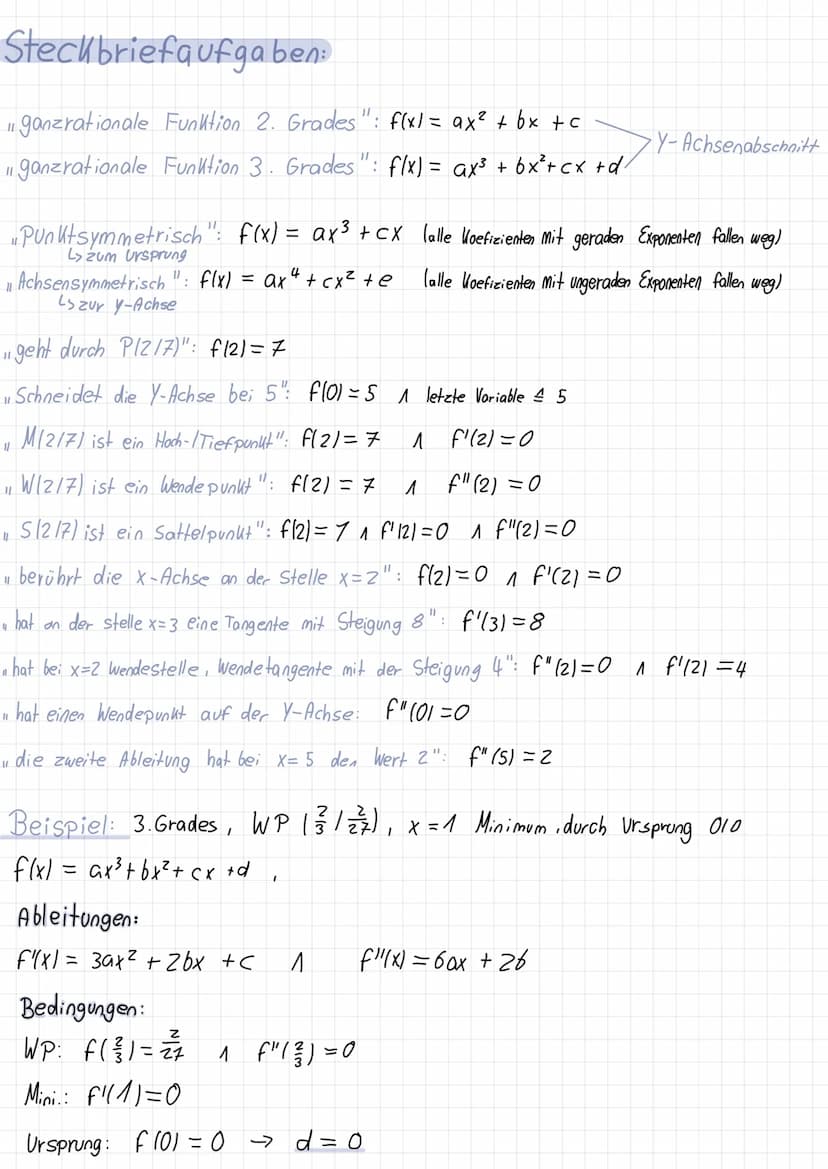 Steckbriefaufgaben:
"ganzrationale Funktion 2. Grades": f(x) = ax² + bx + c
Y-Achsenabschnitt
"ganzrationale Funktion 3. Grades": f(x) = ax³ + bx² + cx + d
"Punktsymmetrisch": f(x) = ax³ + cx (alle Koefizienten mit geraden Exponenten fallen weg)
↳ zum Ursprung
"Achsensymmetrisch": f(x) = ax⁴ + cx² + e (alle Koefizienten mit ungeraden Exponenten fallen weg)
↳ zur Y-Achse
"geht durch P(2/7)": f(2) = 7
"Schneidet die Y-Achse bei 5": f(0) = 5 ∧ letzte Variable ≙ 5
"M(2/7) ist ein Hoch-/Tiefpunkt": f(2) = 7 ∧ f'(2) = 0
"W(2/7) ist ein Wendepunkt": f(2) = 7 ∧ f''(2) = 0
"S(2/7) ist ein Sattelpunkt": f(2) = 7 ∧ f'(2) = 0 ∧ f''(2) = 0
"berührt die x-Achse an der Stelle x=2": f(2) = 0 ∧ f'(2) = 0
"hat an der stelle x=3 eine Tangente mit Steigung 8": f'(3) = 8
"hat bei x=2 Wendestelle, Wendetangente mit der Steigung 4": f''(2) = 0 ∧ f'(2) = 4
"hat einen Wendepunkt auf der Y-Achse: f''(0) = 0
"die zweite Ableitung hat bei x=5 den Wert 2": f''(5) = 2
Beispiel: 3.Grades, WP (2/3 / 2/27), x = 1 Minimum, durch Ursprung 0/0
f(x) = ax³ + bx² + cx + d ,
Ableitungen:
f'(x) = 3ax² + 2bx + c ∧ f''(x) = 6ax + 2b
Bedingungen:
WP: f(2/3) = 2/27 ∧ f''(2/3) = 0
Mini.: f'(1) = 0
Ursprung: f(0) = 0 → d = 0